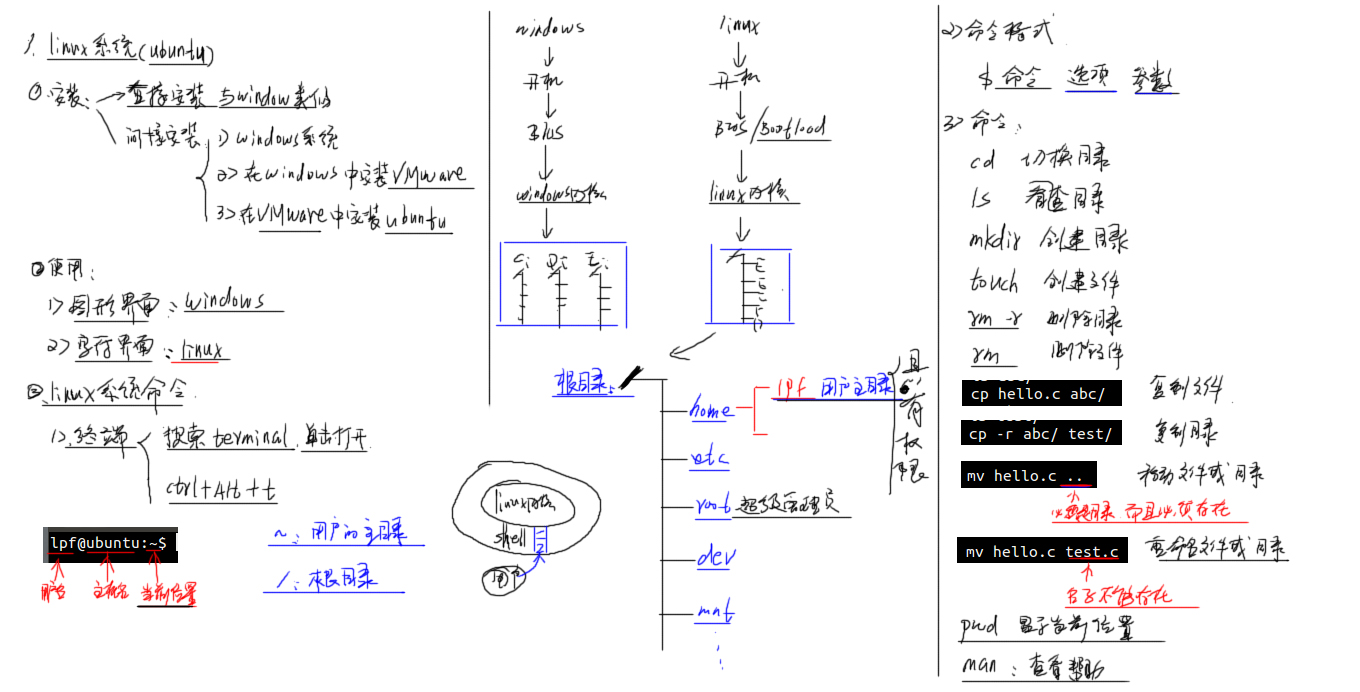 1. linux系统(ubuntu)
① 安装：
直接安装 与window类似
间接安装
1) windows系统
2> 在windows中安装VMware
3> 在VMware中安装ubuntu
②使用：
1) 图形界面：windows
2> 字符界面：linux
③ linux系统命令
1>. 终端
搜索terminal，单击打开
ctrl+Alt+t
lpf@ubuntu:~$
用户名 主机名 当前位置
~：用户的主目录
/：根目录
windows
开机
BIOS
windows内核
C: D: E:
linux
开机
BIOS/Bootload
linux内核
/
根目录：/
home
lpf 用户主目录
具有权限
etc
root 超级管理员
dev
mnt
linux内核
shell
用户
2> 命令格式
$ 命令 选项 参数
3> 命令：
cd 切换目录
ls 查看目录
mkdir 创建目录
touch 创建文件
rm -r 删除目录
rm 删除文件
cp hello.c abc/ 复制文件
cp -r abc/ test/ 复制目录
mv hello.c .. 移动文件或目录
必须是目录 而且必须存在
mv hello.c test.c 重命名文件或目录
名字不能存在
pwd 显示当前位置
man：查看帮助